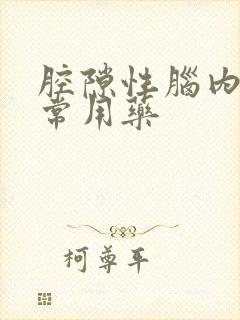 腔隙性腦內
常用藥
柯尊平